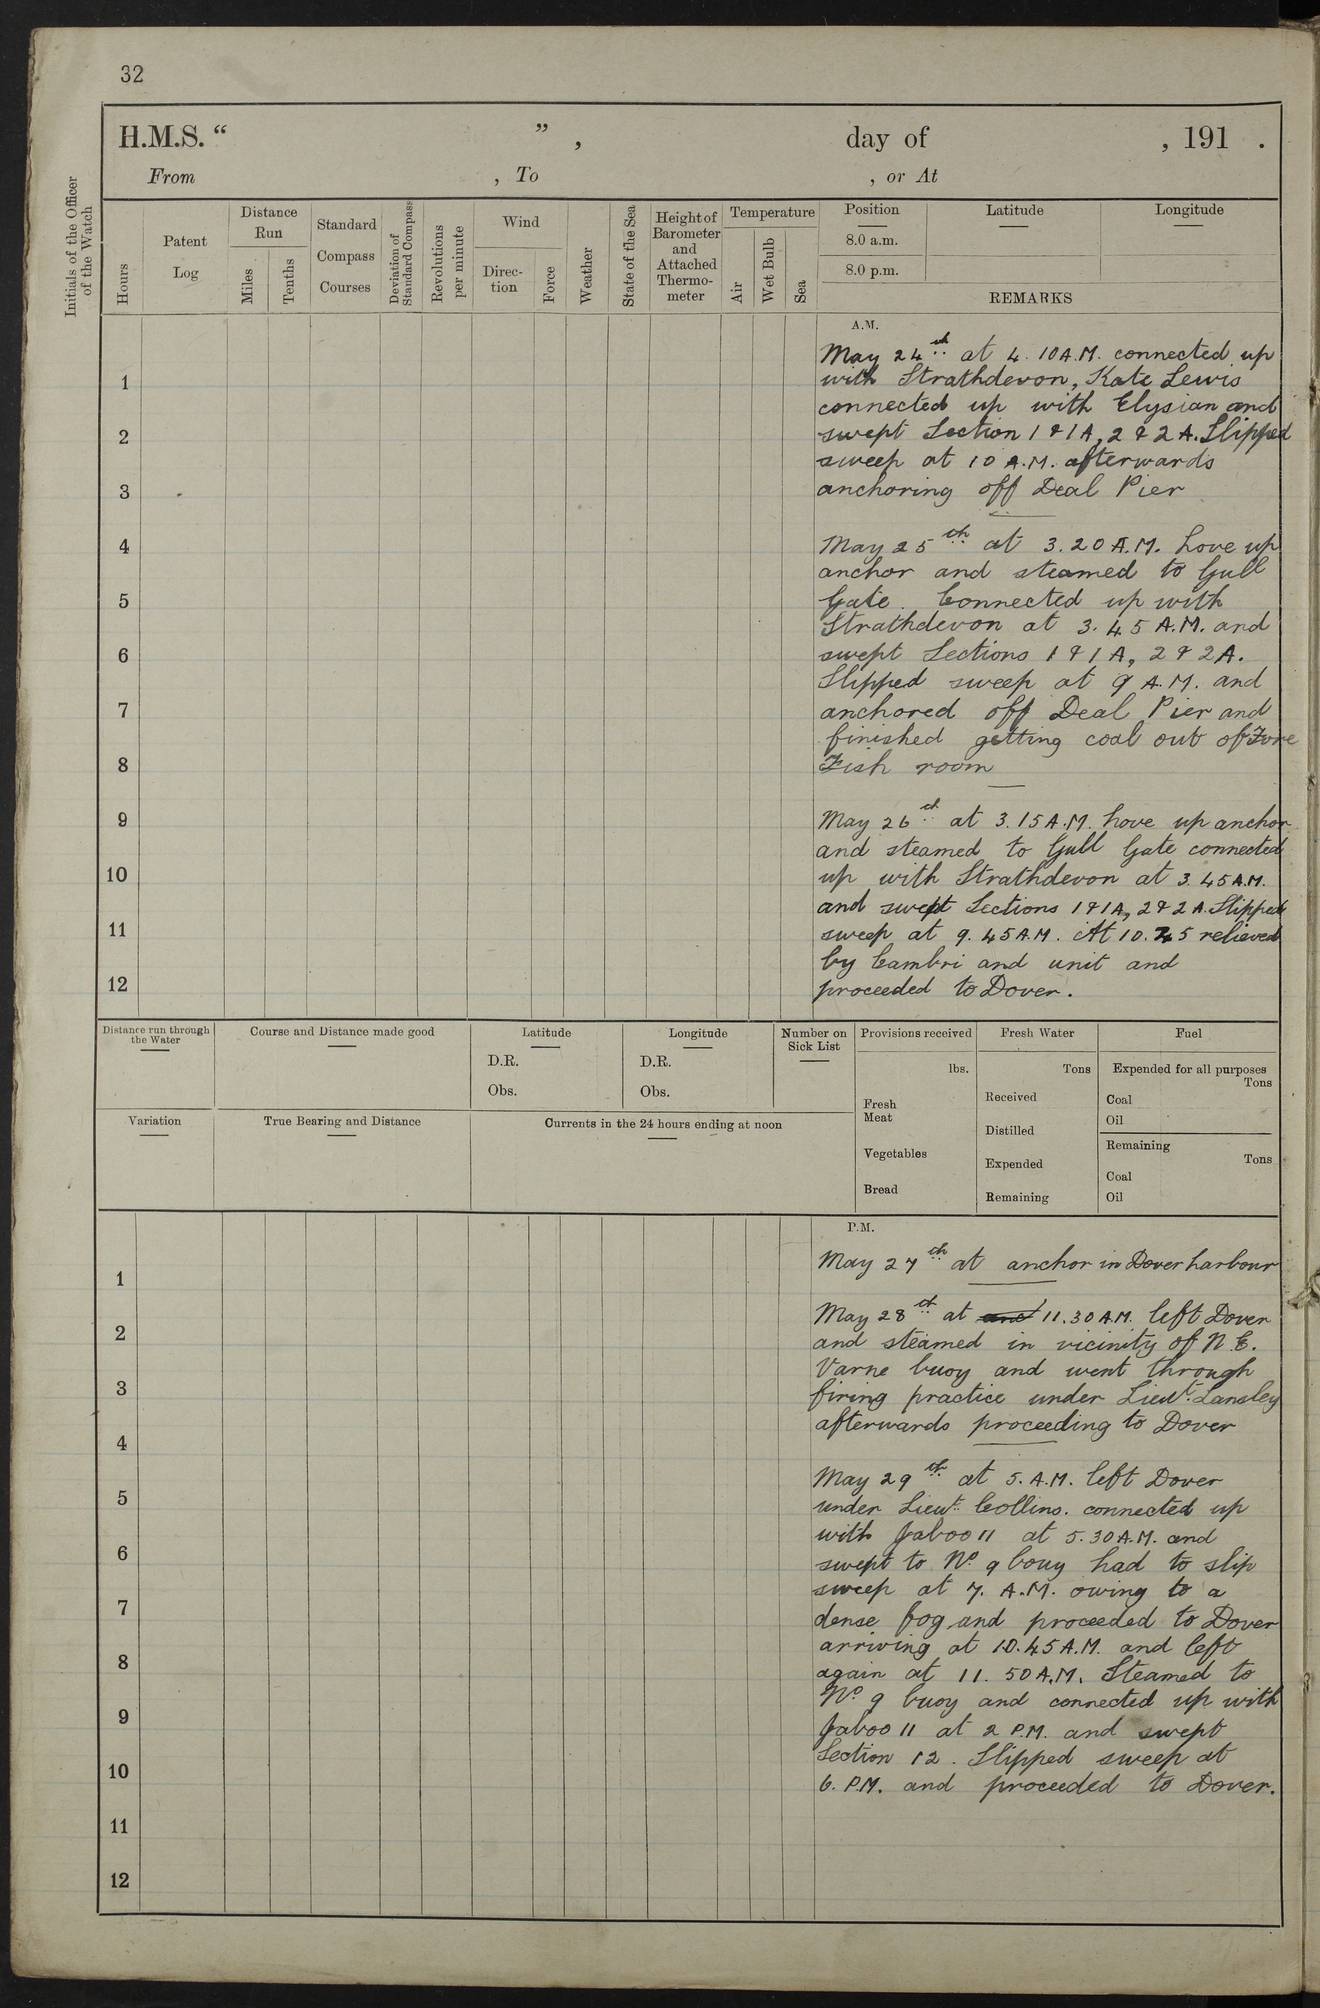 32
H.M.S. “ ” , day of , 191 .
From , To , or At
Initials of the Officer of the Watch
Hours
Patent Log
Distance Run
Miles
Tenths
Standard Compass Courses
Deviation of Standard Compass
Revolutions per minute
Wind
Direc-tion
Force
Weather
State of the Sea
Height of Barometer and Attached Thermo-meter
Temperature
Air
Wet Bulb
Sea
Position
8.0 a.m.
8.0 p.m.
Latitude
Longitude
REMARKS
A.M.
1
2
3
4
5
6
7
8
9
10
11
12
May 24th at 4.10 A.M. connected up
with Strathdevon, Kate Lewis
connected up with Elysian and
swept Section 1 & 1A, 2 & 2A. Slipped
sweep at 10 A.M. afterwards
anchoring off Deal Pier
May 25th at 3.20 A.M. hove up
anchor and steamed to Gull
Gate. Connected up with
Strathdevon at 3.45 A.M. and
swept Sections 1 & 1A, 2 & 2A.
Slipped sweep at 9 A.M. and
anchored off Deal Pier and
finished getting coal out of Fore
Fish room
May 26th at 3.15 A.M. hove up anchor
and steamed to Gull Gate connected
up with Strathdevon at 3.45 A.M.
and swept Sections 1 & 1A, 2 & 2A. Slipped
sweep at 9.45 A.M. At 10.45 relieved
by Cambri and unit and
proceeded to Dover.
Distance run through the Water
Course and Distance made good
Latitude
D.R.
Obs.
Longitude
D.R.
Obs.
Number on Sick List
Provisions received
lbs.
Fresh Meat
Vegetables
Bread
Fresh Water
Tons
Received
Distilled
Expended
Remaining
Fuel
Expended for all purposes
Tons
Coal
Oil
Remaining
Tons
Coal
Oil
Variation
True Bearing and Distance
Currents in the 24 hours ending at noon
P.M.
1
2
3
4
5
6
7
8
9
10
11
12
May 27th at anchor in Dover harbour
May 28th at and 11.30 A.M. left Dover
and steamed in vicinity of N.E.
Varne buoy and went through
firing practice under Lieut. Lansley
afterwards proceeding to Dover
May 29th at 5. A.M. left Dover
under Lieut. Collins. connected up
with Jaboo 11 at 5.30 A.M. and
swept to No. 9 bouy had to slip
sweep at 7. A.M. owing to a
dense fog and proceeded to Dover
arriving at 10.45 A.M. and left
again at 11.50 A.M. Steamed to
No. 9 buoy and connected up with
Jaboo 11 at 2 P.M. and swept
Section 12. Slipped sweep at
6. P.M. and proceeded to Dover.